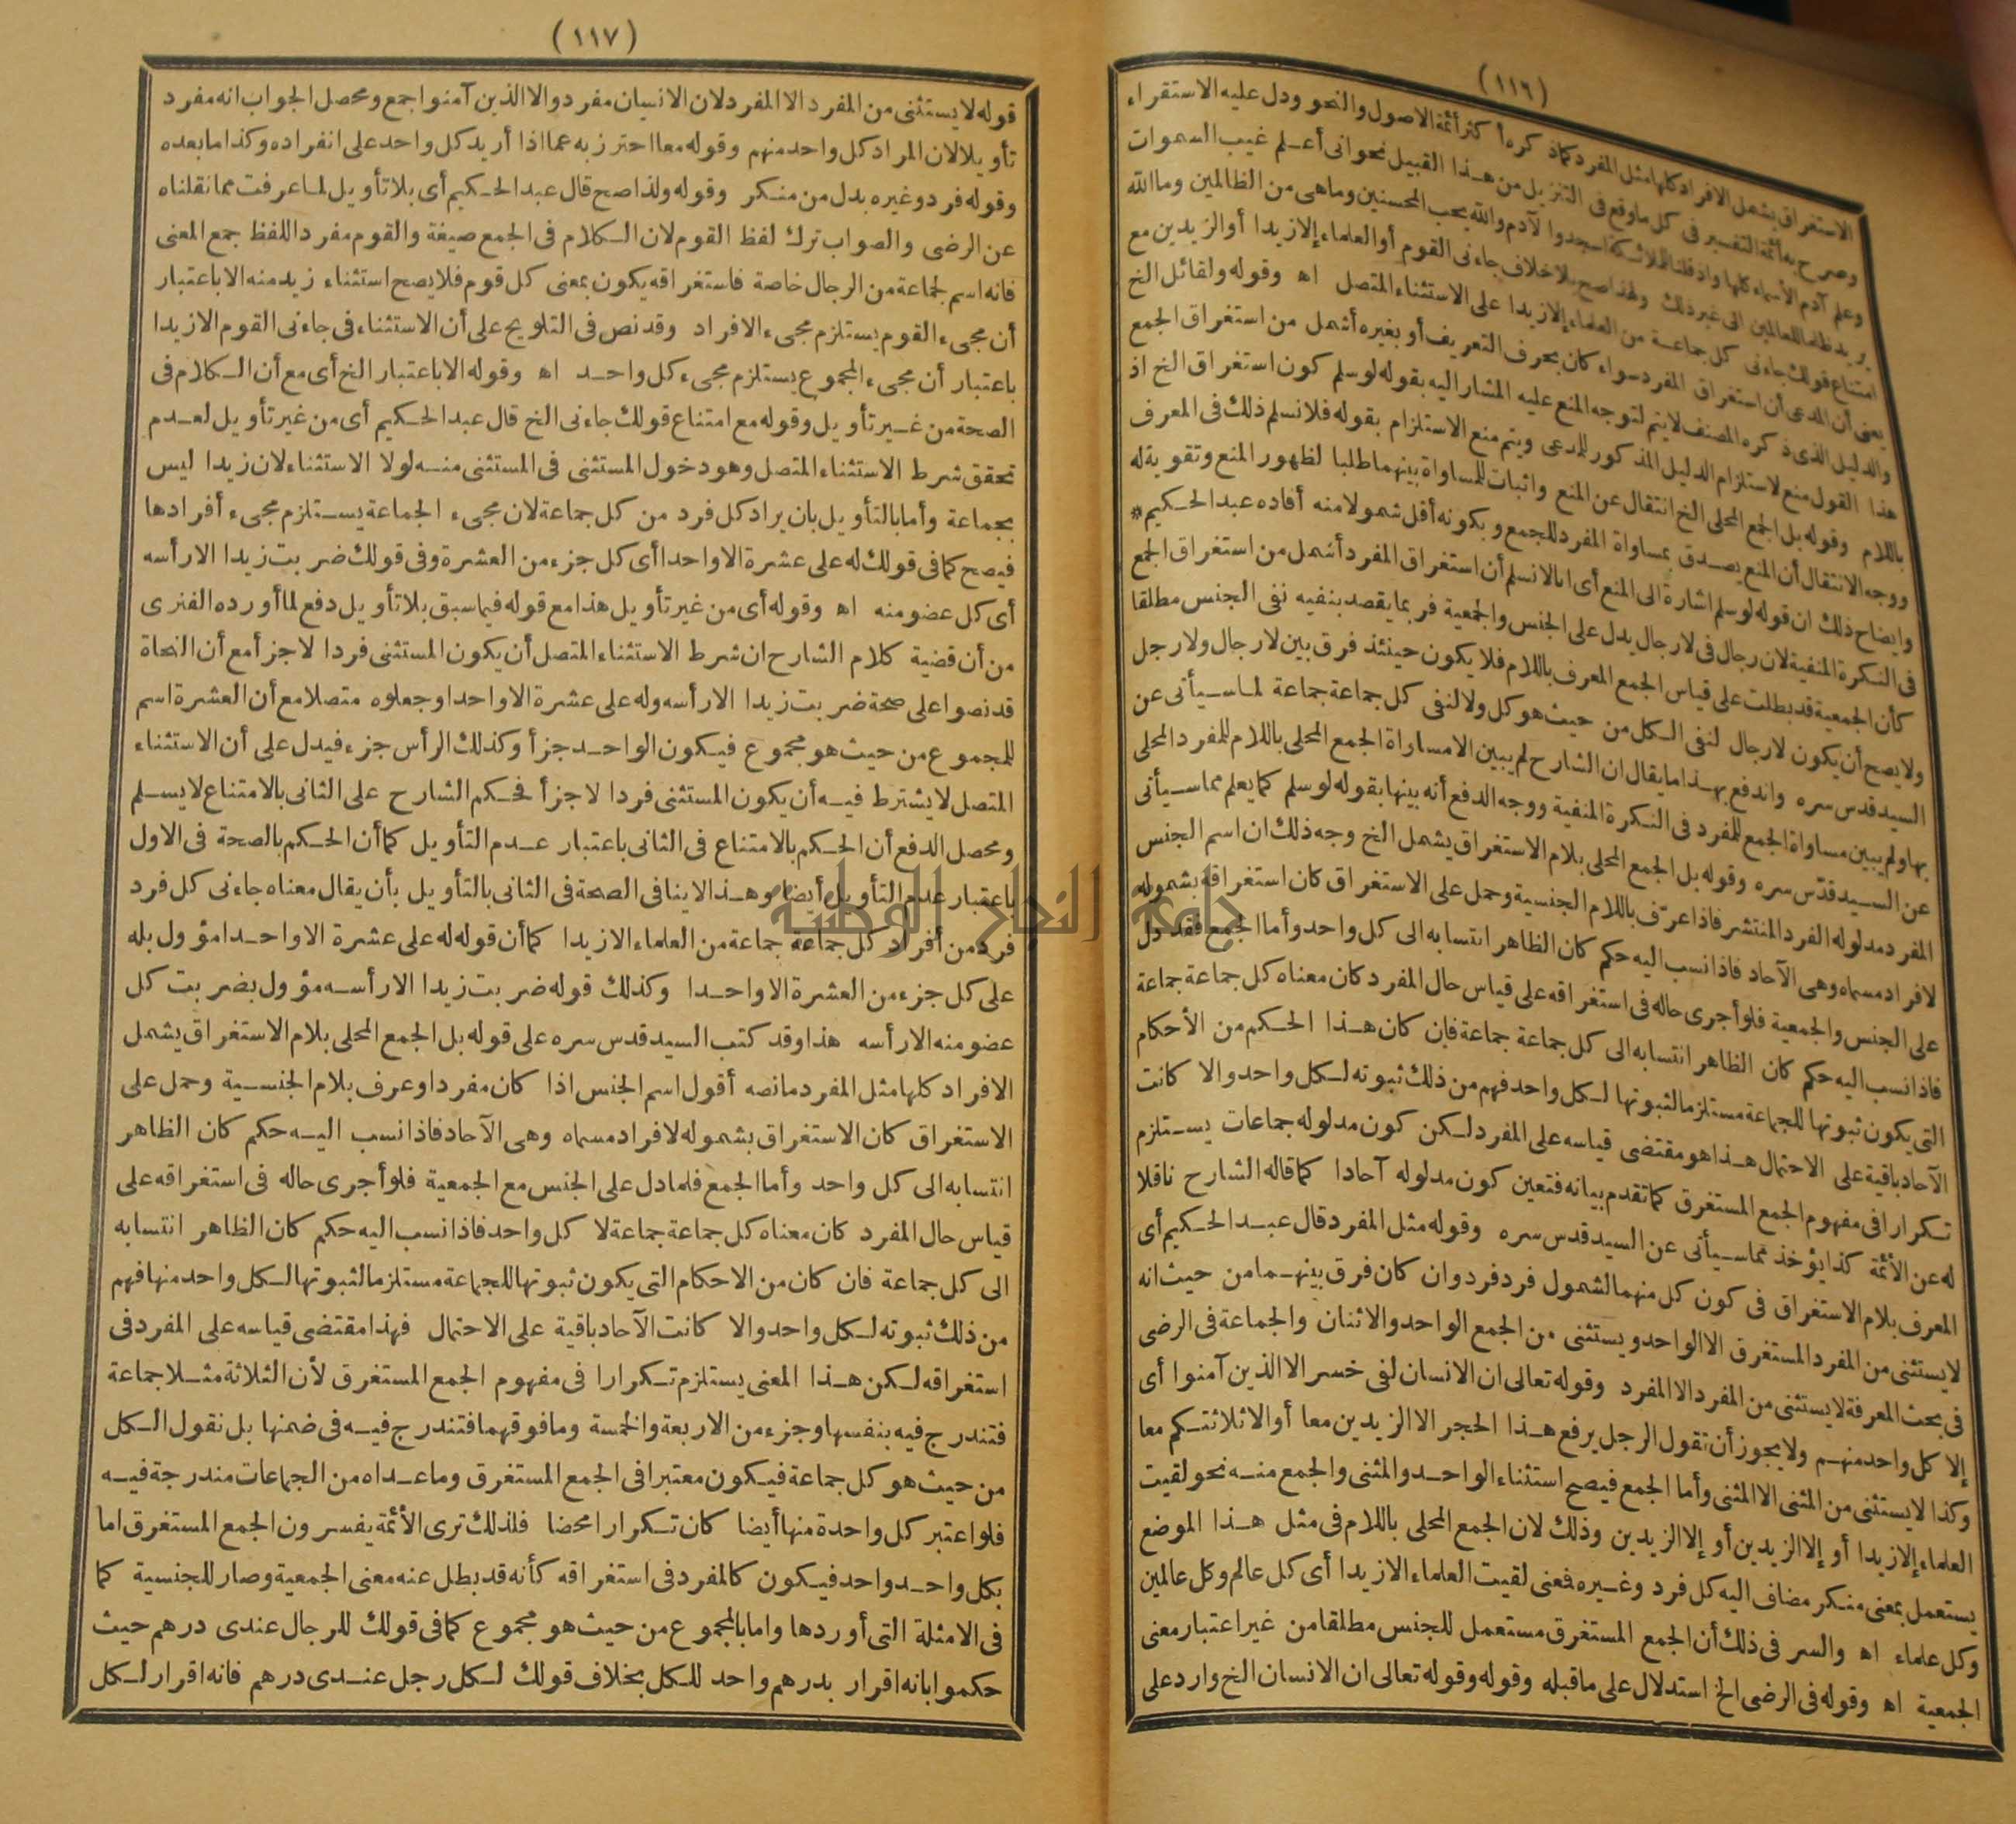 (١١٦)
الاستغراق يشمل الافراد كلها مثل المفرد كما ذكره أكثر أئمة الاصول والنحو ودل عليه الاستقراء
وصرح به أئمة التفسير فى كل ما وقع فى التنزيل من هذا القبيل نحو انى أعلم غيب السموات
وعلم آدم الأسماء كلها واذ قلنا للملائكة اسجدوا لآدم والله يحب المحسنين وما هى من الظالمين وما الله
يريد ظلما للعالمين الى غير ذلك ولهذا صح بلا خلاف جاءنى القوم أو العلماء إلا زيدا أو الزيدين مع
امتناع قولك جاءنى كل جماعة من العلماء إلا زيدا على الاستثناء المتصل اه وقوله ولقائل الخ
يعنى أن المدعى أن استغراق المفرد سواء كان بحرف التعريف أو بغيره أشمل من استغراق الجمع
والدليل الذى ذكره المصنف لا يتم لتوجه المنع عليه المشار اليه بقوله لو سلم كون استغراق الخ اذ
هذا القول منع لاستلزام الدليل المذكور للمدعى ويتم منع الاستلزام بقوله فلا نسلم ذلك فى المعرف
باللام وقوله بل الجمع المحلى الخ انتقال عن المنع واثبات للمساواة بينهما طلبا لظهور المنع وتقوية له
ووجه الانتقال أن المنع يصدق بمساواة المفرد للجمع وبكونه أقل شمولا منه أفاده عبد الحكيم *
وايضاح ذلك ان قوله لو سلم اشارة الى المنع أى انا لا نسلم أن استغراق المفرد أشمل من استغراق الجمع
فى النكرة المنفية لان رجال فى لا رجال يدل على الجنس والجمعية فربما يقصد بنفيه نفى الجنس مطلقا
كأن الجمعية قد بطلت على قياس الجمع المعرف باللام فلا يكون حينئذ فرق بين لا رجال ولا رجل
ولا يصح أن يكون لا رجال لنفى الكل من حيث هو كل ولا لنفى كل جماعة جماعة لما سيأتى عن
السيد قدس سره واندفع بهذا ما يقال ان الشارح لم يبين الا مساواة الجمع المحلى باللام للمفرد المحلى
بها ولم يبين مساواة الجمع للمفرد فى النكرة المنفية ووجه الدفع أنه بينها بقوله لو سلم كما يعلم مما سيأتى
عن السيد قدس سره وقوله بل الجمع المحلى بلام الاستغراق يشمل الخ وجه ذلك ان اسم الجنس
المفرد مدلوله الفرد المنتشر فاذا عرّف باللام الجنسية وحمل على الاستغراق كان استغراقه بشموله
لافراد مسماه وهى الآحاد فاذا نسب اليه حكم كان الظاهر انتسابه الى كل واحد وأما الجمع فقد دل
على الجنس والجمعية فلو أجرى حاله فى استغراقه على قياس حال المفرد كان معناه كل جماعة جماعة
فاذا نسب اليه حكم كان الظاهر انتسابه الى كل جماعة جماعة فإن كان هذا الحكم من الأحكام
التى يكون ثبوتها للجماعة مستلزما لثبوتها لكل واحد فهم من ذلك ثبوته لكل واحد والا كانت
الآحاد باقية على الاحتمال هذا هو مقتضى قياسه على المفرد لكن كون مدلوله جماعات يستلزم
تكرارا فى مفهوم الجمع المستغرق كما تقدم بيانه فتعين كون مدلوله آحادا كما قاله الشارح ناقلا
له عن الأئمة كذا يؤخذ مما سيأتى عن السيد قدس سره وقوله مثل المفرد قال عبد الحكيم أى
المعرف بلام الاستغراق فى كون كل منهما لشمول فرد فرد وان كان فرق بينهما من حيث انه
لا يستثنى من المفرد المستغرق الا الواحد ويستثنى من الجمع الواحد والاثنان والجماعة فى الرضى
فى بحث المعرفة لا يستثنى من المفرد الا المفرد وقوله تعالى ان الانسان لفى خسر الا الذين آمنوا أى
إلا كل واحد منهم ولا يجوز أن تقول الرجل يرفع هذا الحجر الا الزيدين معا أو الا ثلاثتكم معا
وكذا لا يستثنى من المثنى الا المثنى وأما الجمع فيصح استثناء الواحد والمثنى والجمع منه نحو لقيت
العلماء إلا زيدا أو إلا الزيدين أو إلا الزيدين وذلك لان الجمع المحلى باللام فى مثل هذا الموضع
يستعمل بمعنى منكر مضاف اليه كل فرد وغيره فعنى لقيت العلماء الا زيدا أى كل عالم وكل عالمين
وكل علماء اه والسر فى ذلك أن الجمع المستغرق مستعمل للجنس مطلقا من غير اعتبار معنى
الجمعية اه وقوله فى الرضى الخ استدلال على ما قبله وقوله وقوله تعالى ان الانسان الخ وارد على
(١١٧)
قوله لا يستثنى من المفرد الا المفرد لان الانسان مفرد والا الذين آمنوا جمع ومحصل الجواب انه مفرد
تأويلا لان المراد كل واحد منهم وقوله معا احترز به عما اذا أريد كل واحد على انفراده وكذا ما بعده
وقوله فرد وغيره بدل من منكر وقوله ولذا صح قال عبد الحكيم أى بلا تأويل لما عرفت مما نقلناه
عن الرضى والصواب ترك لفظ القوم لان الكلام فى الجمع صيغة والقوم مفرد اللفظ جمع المعنى
فانه اسم لجماعة من الرجال خاصة فاستغراقه يكون بمعنى كل قوم فلا يصح استثناء زيد منه الا باعتبار
أن مجىء القوم يستلزم مجىء الافراد وقد نص فى التلويح على أن الاستثناء فى جاءنى القوم الا زيدا
باعتبار أن مجىء المجموع يستلزم مجىء كل واحد اه وقوله الا باعتبار الخ أى مع أن الكلام فى
الصحة من غير تأويل وقوله مع امتناع قولك جاءنى الخ قال عبد الحكيم أى من غير تأويل لعدم
تحقق شرط الاستثناء المتصل وهو دخول المستثنى فى المستثنى منه لولا الاستثناء لان زيدا ليس
بجماعة وأما بالتأويل بان يراد كل فرد من كل جماعة لان مجىء الجماعة يستلزم مجىء أفرادها
فيصح كما فى قولك له على عشرة الا واحدا أى كل جزء من العشرة وفى قولك ضربت زيدا الا رأسه
أى كل عضو منه اه وقوله أى من غير تأويل هذا مع قوله فيما سبق بلا تأويل دفع لما أورده الفنرى
من أن قضية كلام الشارح ان شرط الاستثناء المتصل أن يكون المستثنى فردا لا جزأ مع أن النحاة
قد نصوا على صحة ضربت زيدا الا رأسه وله على عشرة الا واحدا وجعلوه متصلا مع أن العشرة اسم
للمجموع من حيث هو مجموع فيكون الواحد جزأ وكذلك الرأس جزء فيدل على أن الاستثناء
المتصل لا يشترط فيه أن يكون المستثنى فردا لا جزأ فحكم الشارح على الثانى بالامتناع لا يسلم
ومحصل الدفع أن الحكم بالامتناع فى الثانى باعتبار عدم التأويل كما أن الحكم بالصحة فى الاول
باعتبار عدم التأويل أيضا وهذا لا ينافى الصحة فى الثانى بالتأويل بأن يقال معناه جاءنى كل فرد
فرد من أفراد كل جماعة جماعة من العلماء الا زيدا كما أن قوله له على عشرة الا واحدا مؤول بله
على كل جزء من العشرة الا واحدا وكذلك قوله ضربت زيدا الا رأسه مؤول بضربت كل
عضو منه الا رأسه هذا وقد كتب السيد قدس سره على قوله بل الجمع المحلى بلام الاستغراق يشمل
الافراد كلها مثل المفرد ما نصه أقول اسم الجنس اذا كان مفردا وعرف بلام الجنسية وحمل على
الاستغراق كان الاستغراق بشموله لافراد مسماه وهى الآحاد فاذا نسب اليه حكم كان الظاهر
انتسابه الى كل واحد وأما الجمع فلما دل على الجنس مع الجمعية فلو أجرى حاله فى استغراقه على
قياس حال المفرد كان معناه كل جماعة جماعة لا كل واحد فاذا نسب اليه حكم كان الظاهر انتسابه
الى كل جماعة فان كان من الاحكام التى يكون ثبوتها للجماعة مستلزما لثبوتها لكل واحد منها فهم
من ذلك ثبوته لكل واحد والا كانت الآحاد باقية على الاحتمال فهذا مقتضى قياسه على المفرد فى
استغراقه لكن هذا المعنى يستلزم تكرارا فى مفهوم الجمع المستغرق لأن الثلاثة مثلا جماعة
فتندرج فيه بنفسها وجزء من الاربعة والخمسة وما فوقهما فتندرج فيه فى ضمنها بل نقول الكل
من حيث هو كل جماعة فيكون معتبرا فى الجمع المستغرق وما عداه من الجماعات مندرجة فيه
فلو اعتبر كل واحدة منها أيضا كان تكرارا محضا فلذلك ترى الأئمة يفسرون الجمع المستغرق اما
بكل واحد واحد فيكون كالمفرد فى استغراقه كأنه قد بطل عنه معنى الجمعية وصار للجنسية كما
فى الامثلة التى أوردها واما بالمجموع من حيث هو مجموع كما فى قولك للرجال عندى درهم حيث
حكموا بانه اقرار بدرهم واحد للكل بخلاف قولك لكل رجل عندى درهم فانه اقرار لكل
جامع النجاح الوطنية